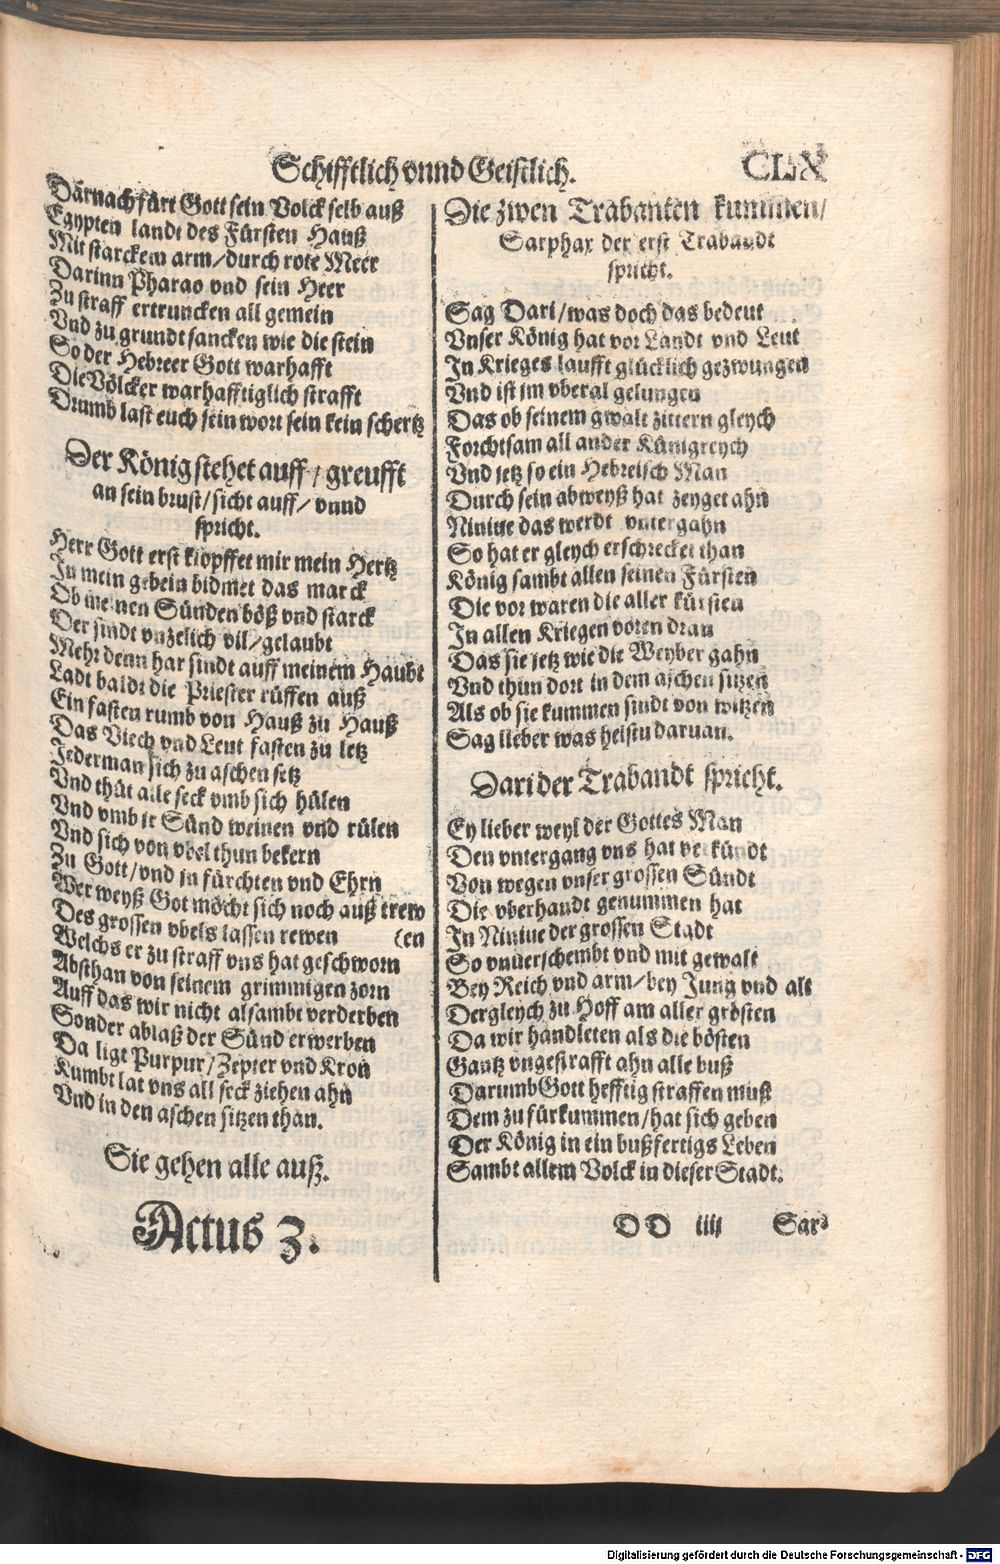 Schifftlich vnnd Geistlich. CLIX
Darnach fürt Gott sein Volck selb auß
Egypten landt des Fürsten Hauß
Mit starckem arm/durch rote Meer
Darinn Pharao vnd sein Heer
Zu straff ertruncken all gemein
Vnd zu grundt sancken wie die stein
So der Hebreer Gott warhafft
Die Völcker warhafftiglich strafft
Drumb last euch sein wort sein kein schertz
Der König stehet auff/greufft
an sein brust/sicht auff/vnnd
spricht.
Herr Gott erst klopffet mir mein Hertz
In mein gebein bidmet das marck
Ob meinen Sünden böß vnd starck
Der sindt vnzelich vil/gelaubt
Mehr denn har sindt auff meinem Haubt
Ladt baldt die Priester rüffen auß
Ein fasten rumb von Hauß zu Hauß
Das Viech vnd Leut fasten zu letz
Jederman sich zu aschen setz
Vnd thüt alle seck vmb sich hülen
Vnd vmb ir Sünd weinen vnd rülen
Vnd sich von vbel thun bekern
Zu Gott/vnd in fürchten vnd Ehrn
Wer weyß Got möcht sich noch auß trew
Des grossen vbels lassen rewen (en
Welchs er zu straff vns hat geschworn
Absthan von seinem grimmigen zorn
Auff das wir nicht alsambt verderben
Sonder ablaß der Sünd erwerben
Da ligt Purpur/Zepter vnd Kron
Kumbt lat vns all seck ziehen ahn
Vnd in den aschen sitzen than.
Sie gehen alle auß.
Actus 3.
Die zwen Trabanten kummen/
Sarphax der erst Trabandt
spricht.
Sag Dari/was doch das bedeut
Vnser König hat vor Landt vnd Leut
In Krieges laufft glücklich gezwungen
Vnd ist im vberal gelungen
Das ob seinem gwalt zittern gleych
Forchtsam all ander Künigreych
Vnd jetz so ein Hebreisch Man
Durch sein abweyß hat zeyget ahn
Niniue das werdt vntergahn
So hat er gleych erschrecket than
König sambt allen seinen Fürsten
Die vor waren die aller kürsten
In allen Kriegen voren dran
Das sie jetz wie die Weyber gahn
Vnd thun dort in dem aschen sitzen
Als ob sie kummen sindt von witzen
Sag lieber was helstu daruan.
Dari der Trabandt spricht.
Ey lieber weyl der Gottes Man
Den vntergang vns hat verkündt
Von wegen vnser grossen Sündt
Die vberhandt genummen hat
In Niniue der grossen Stadt
So vnuerschembt vnd mit gewalt
Bey Reich vnd arm/bey Jung vnd alt
Dergleych zu Hoff am aller grösten
Da wir handleten als die bösten
Gantz vngestrafft ahn alle buß
Darumb Gott hefftig straffen muß
Dem zu fürkummen/hat sich geben
Der König in ein bußfertigs Leben
Sambt allem Volck in dieser Stadt.
DD iiij Sar⸗
Digitalisierung gefördert durch die Deutsche Forschungsgemeinschaft - DFG